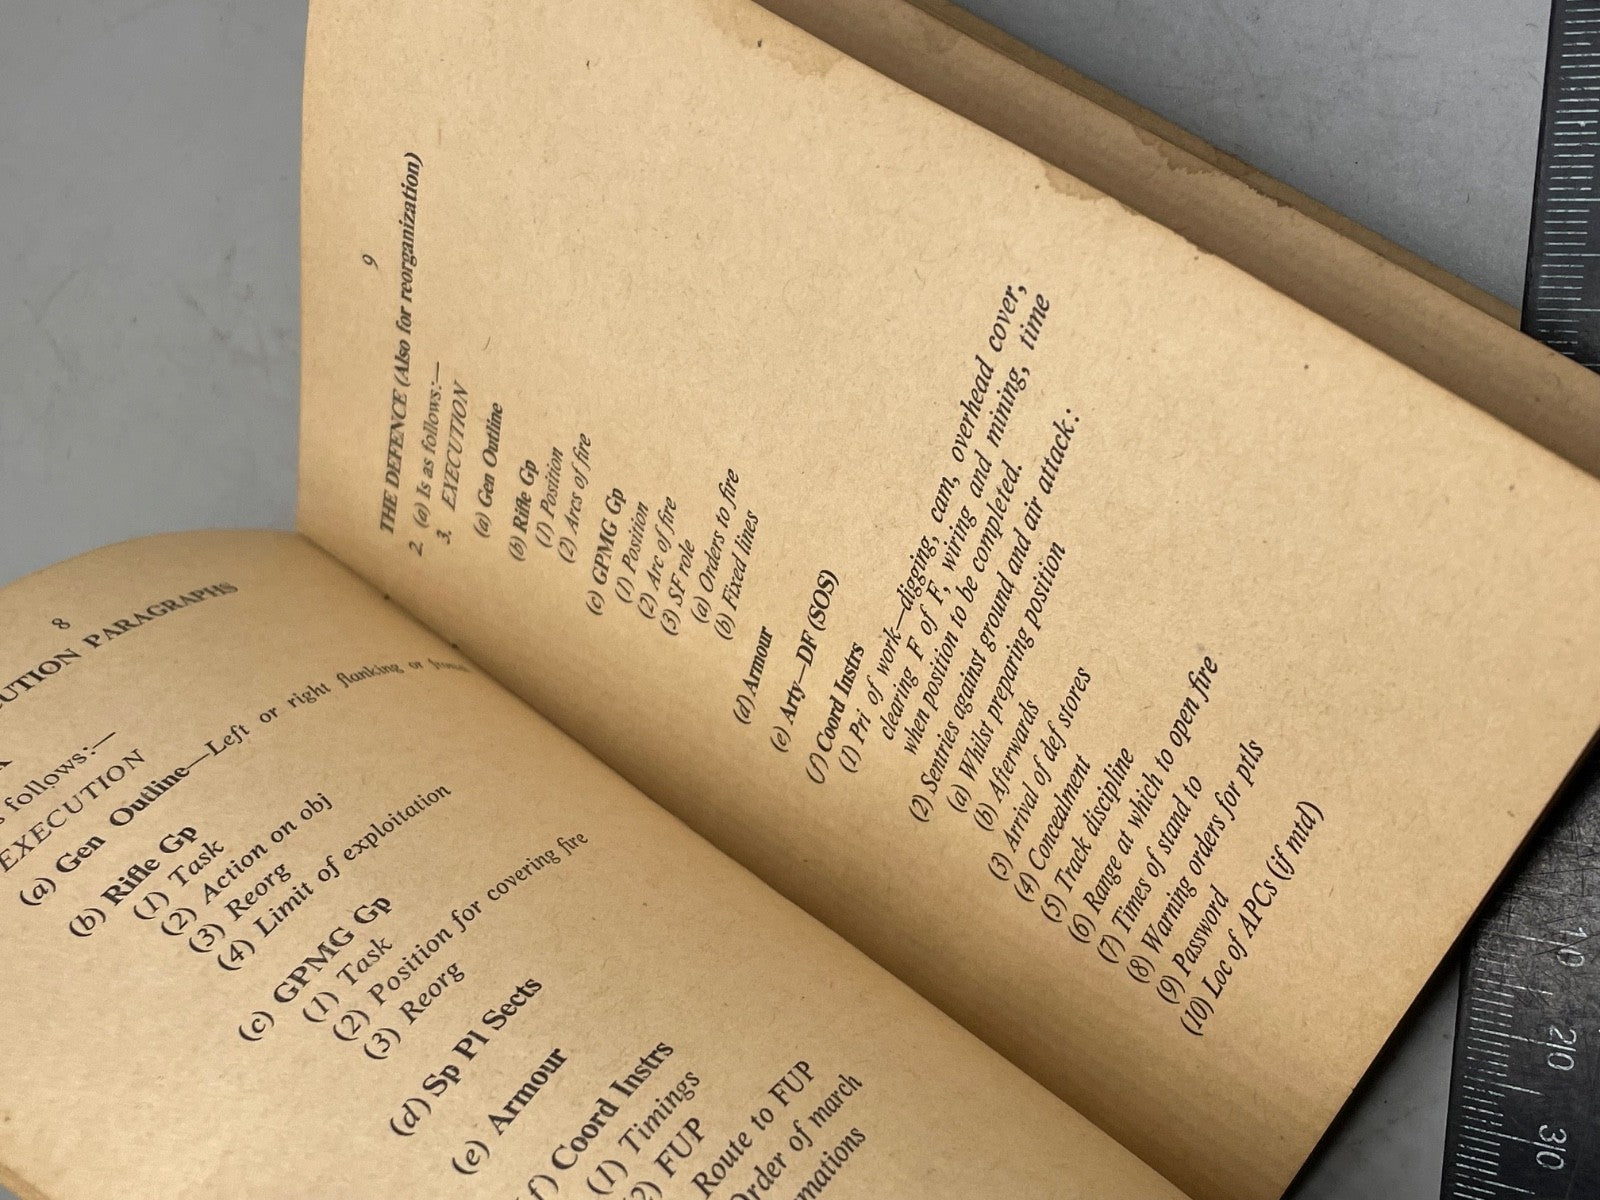 8
PARAGRAPHS
follows:—
EXECUTION
(a) Gen Outline—Left or right flanking or
(b) Rifle Gp
(1) Task
(2) Action on obj
(3) Reorg
(4) Limit of exploitation
(c) GPMG Gp
(1) Task
(2) Position for covering fire
(3) Reorg
(d) Sp Pl Sects
(e) Armour
f) Coord Instrs
(1) Timings
2) FUP
Route to FUP
rder of march
9
THE DEFENCE (Also for reorganization)
2. (a) Is as follows:—
3. EXECUTION
(a) Gen Outline
(b) Rifle Gp
(1) Position
(2) Arcs of fire
(c) GPMG Gp
(1) Position
(2) Arc of fire
(3) SF role
(a) Orders to fire
(b) Fixed lines
(d) Armour
(e) Arty—DF (SOS)
(f) Coord Instrs
(1) Pri of work—digging, cam, overhead cover,
clearing F of F, wiring and mining, time
when position to be completed.
(2) Sentries against ground and air attack:
(a) Whilst preparing position
(b) Afterwards
(3) Arrival of def stores
(4) Concealment
(5) Track discipline
(6) Range at which to open fire
(7) Times of stand to
(8) Warning orders for ptls
(9) Password
(10) Loc of APCs (if mtd)
10
20
30